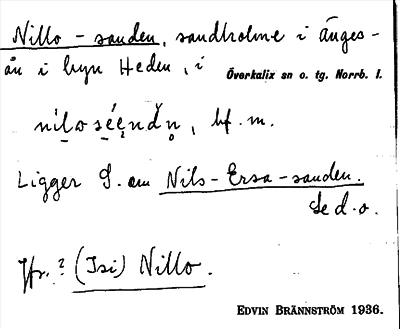 Nillo-sanden, sandholme i änges-
ån i byn Heden, i
Överkalix sn o. tg. Norrb. l.
bf. m.
Ligger S. om Nils-Ersa-sanden.
Se d. o.
Jfr. ? (Isi) Nillo.
EDVIN BRÄNNSTRÖM 1936.